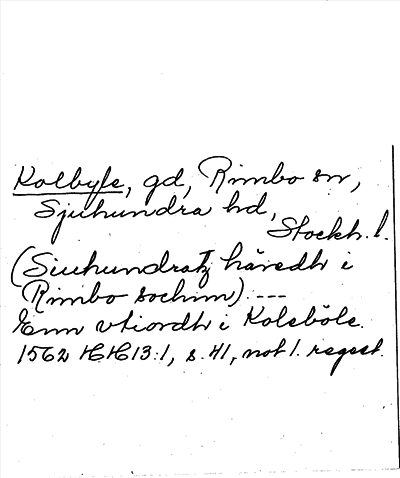 Kolbyle, gd, Rimbo sn,
Sjuhundra hd,
Stockh. l.
(Siuhundratz häredh i
Rimbo sochim) ---
Enn vtiordh i Koleböle.
1562 HH 13:1, s. 41, not 1. regest.